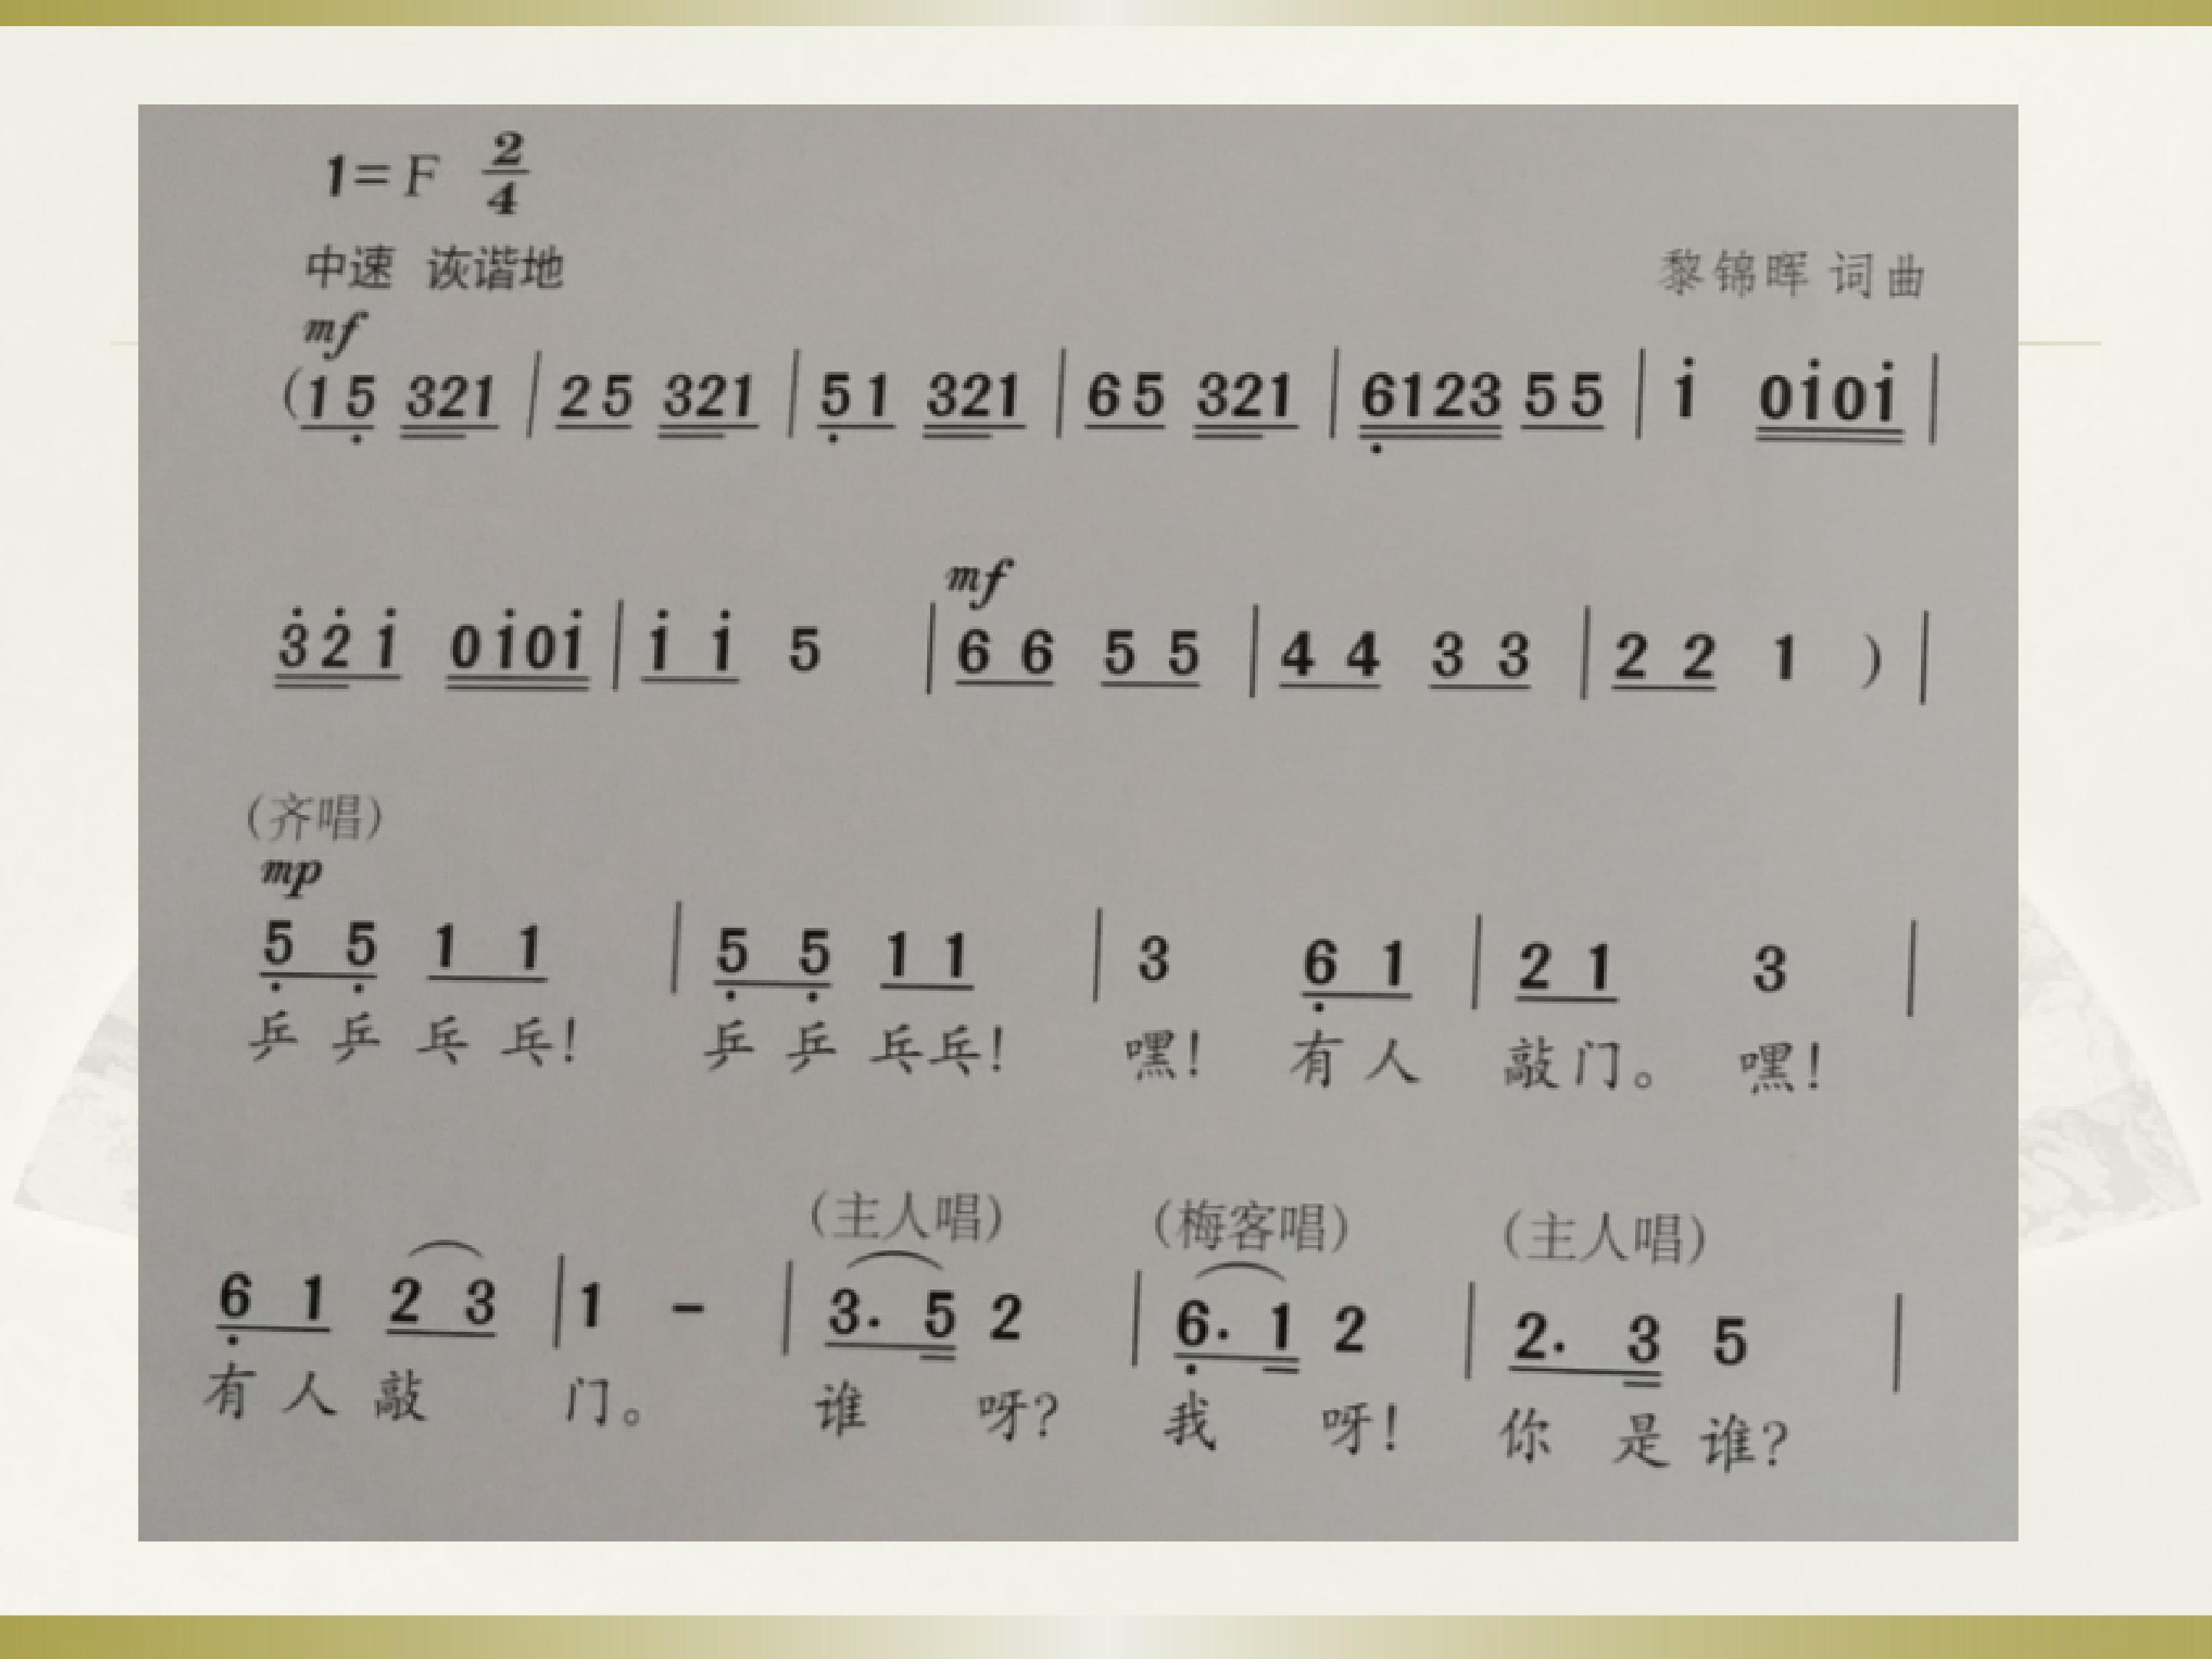 1=F 2/4
中速 诙谐地
黎锦晖 词曲
mf
(1 5̣ 321 | 2 5 321 | 5̣ 1 321 | 6 5 321 | 6̣123 5 5 | i 0i0i |
mf
3̇ 2̇ i 0i0i | i i 5 | 6 6 5 5 | 4 4 3 3 | 2 2 1 ) |
(齐唱)
mp
5̣ 5̣ 1 1 | 5̣ 5̣ 1 1 | 3 6̣ 1 | 2 1 3 |
乒 乒 乓 乓! 乒 乒 乓乓! 嘿! 有 人 敲门。 嘿!
(主人唱) (梅客唱) (主人唱)
6̣ 1 2 3 | 1 - | 3. 5 2 | 6̣. 1 2 | 2. 3 5 |
有 人 敲 门。 谁 呀? 我 呀! 你 是 谁?